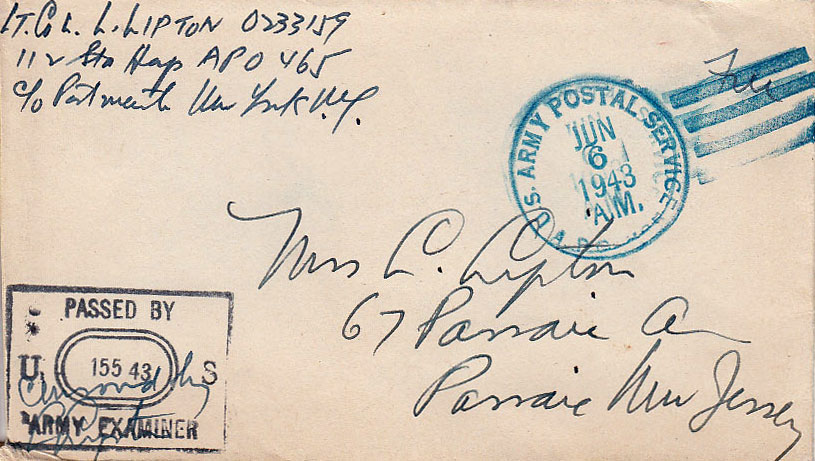 LT. Col L. LIPTON 0233159
112 Sta Hosp APO 465
c/o Postmaster New York N.Y.
Free
U.S. ARMY POSTAL SERVICE
JUN
6
1943
A.M.
A.P.O.
Mrs L. Lipton
67 Passaic Av
Passaic New Jersey
PASSED BY
U. 155 43 S
Censored by
ARMY EXAMINER